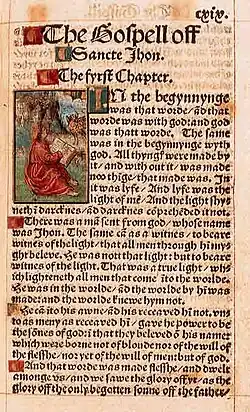 cxix.
The Gospell off
Sancte Jhon.
The fyrst Chapter.
IN the begynnynge
was that worde / ād that
worde was with god: and god
was thatt worde. The same
was in the begynnynge wyth
god. All thyngf were made by
it / and with out it / was made
no thīge / that made was. In
it was lyfe / And lyfe was the
light of mē / And the light shy-
neth ī darcknes / ād darcknes cōprehēded it not.
There was a mā sent from god / whose name
was Jhon. The same cā as a witnes / to beare
witnes of the light / that all men through hī my-
ght beleve. He was nott that light: but to beare
witnes of the light. That was a true light / whi-
ch lighteneth all men that come īto the worlde.
He was in the worlde / ād the worlde by hī was
made: and the worlde knewe hym not.
He cā īto his awne / ād his receaved hī not. vn
to as meny as receaved hī / gave he power to be
the sōnes of god: ī that they beleved ō his name:
which were borne not of bloude nor of the will of
the flesshe / nor yet of the will of men: but of god.
And that worde was made flesshe / and dwelt
amonge vs / and we sawe the glory off yt / as the
glory off the only begotten sonne off the father /